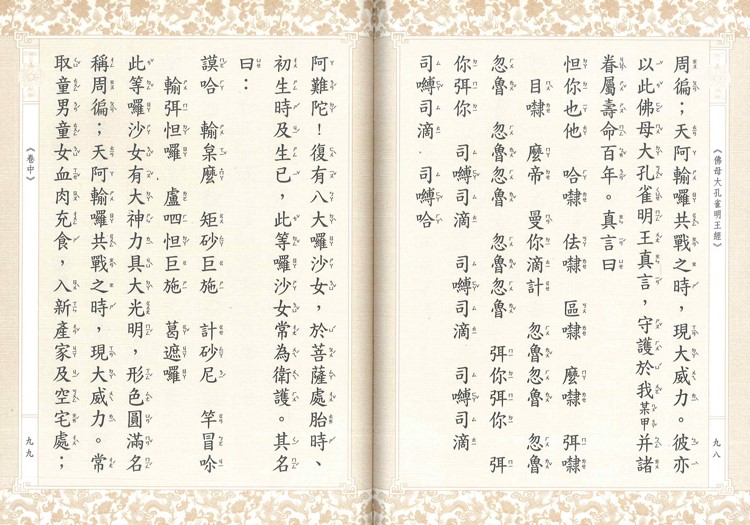 《佛母大孔雀明王經》
九八
周徧；天阿輸囉共戰之時，現大威力。彼亦
以此佛母大孔雀明王真言，守護於我某甲并諸
眷屬壽命百年。真言曰
怛你也他 哈㘑 佉㘑 區㘑 麼㘑 弭㘑
目㘑 麼帝 曼你滴計 忽魯忽魯 忽魯
忽魯 忽魯忽魯 忽魯忽魯 弭你弭你 弭
你弭你 司嚩司滴 司嚩司滴 司嚩司滴
司嚩司滴 司嚩哈
阿難陀！復有八大囉沙女，於菩薩處胎時、
初生時及生已，此等囉沙女常為衛護。其名
曰：
謨哈 輸臬麼 矩砂巨施 計砂尼 竿冒唥
輸弭怛囉 盧呬怛巨施 葛遮囉
此等囉沙女有大神力具大光明，形色圓滿名
稱周徧；天阿輸囉共戰之時，現大威力。常
取童男童女血肉充食，入新產家及空宅處；
《卷中》
九九